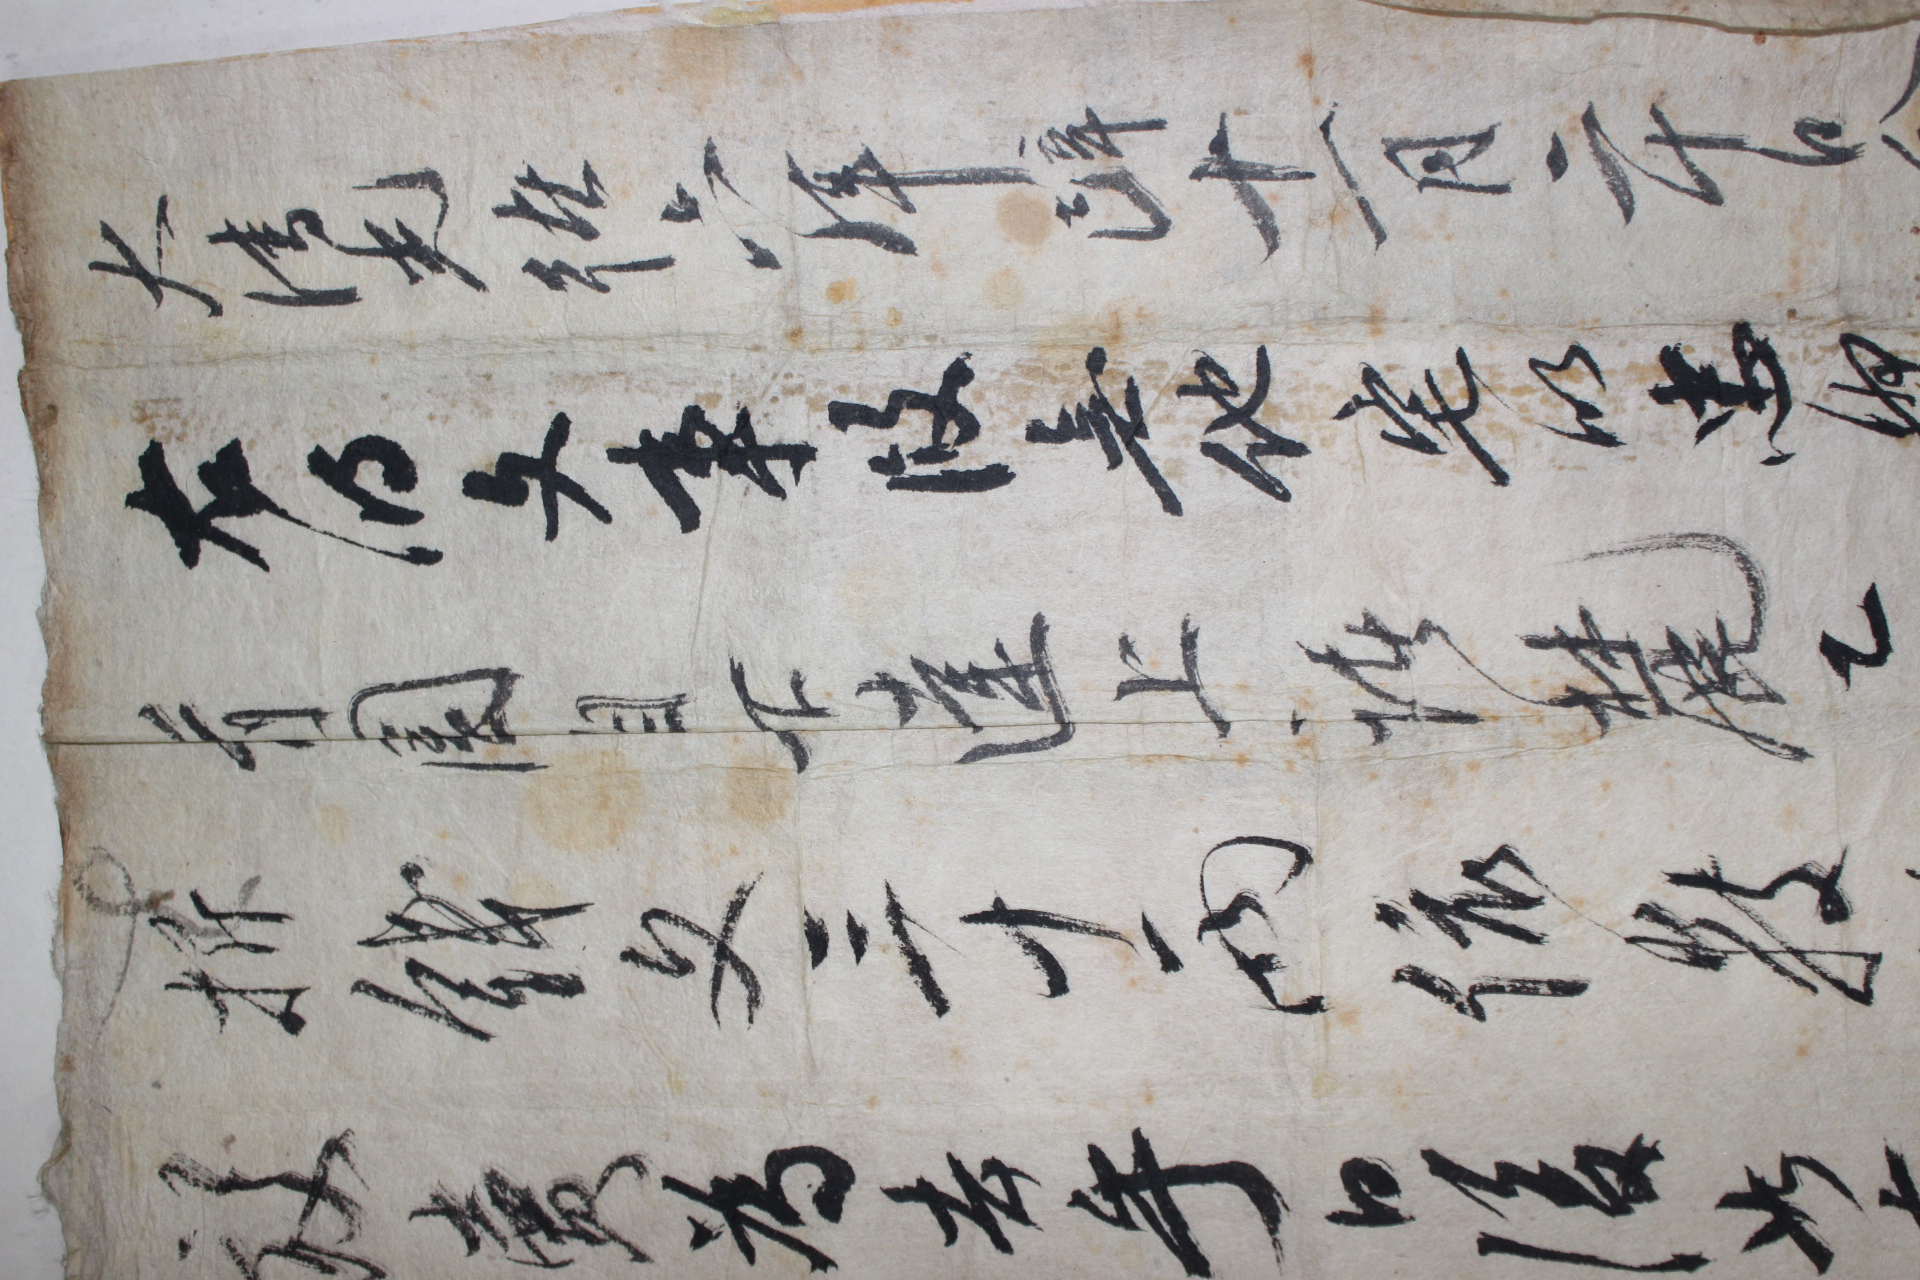 大清光緒六年庚辰十一月二十日
右明文事段無他宅以忠
有園自下達上陸麓乙
折錢文三十兩依數
放賣爲去乎日後此